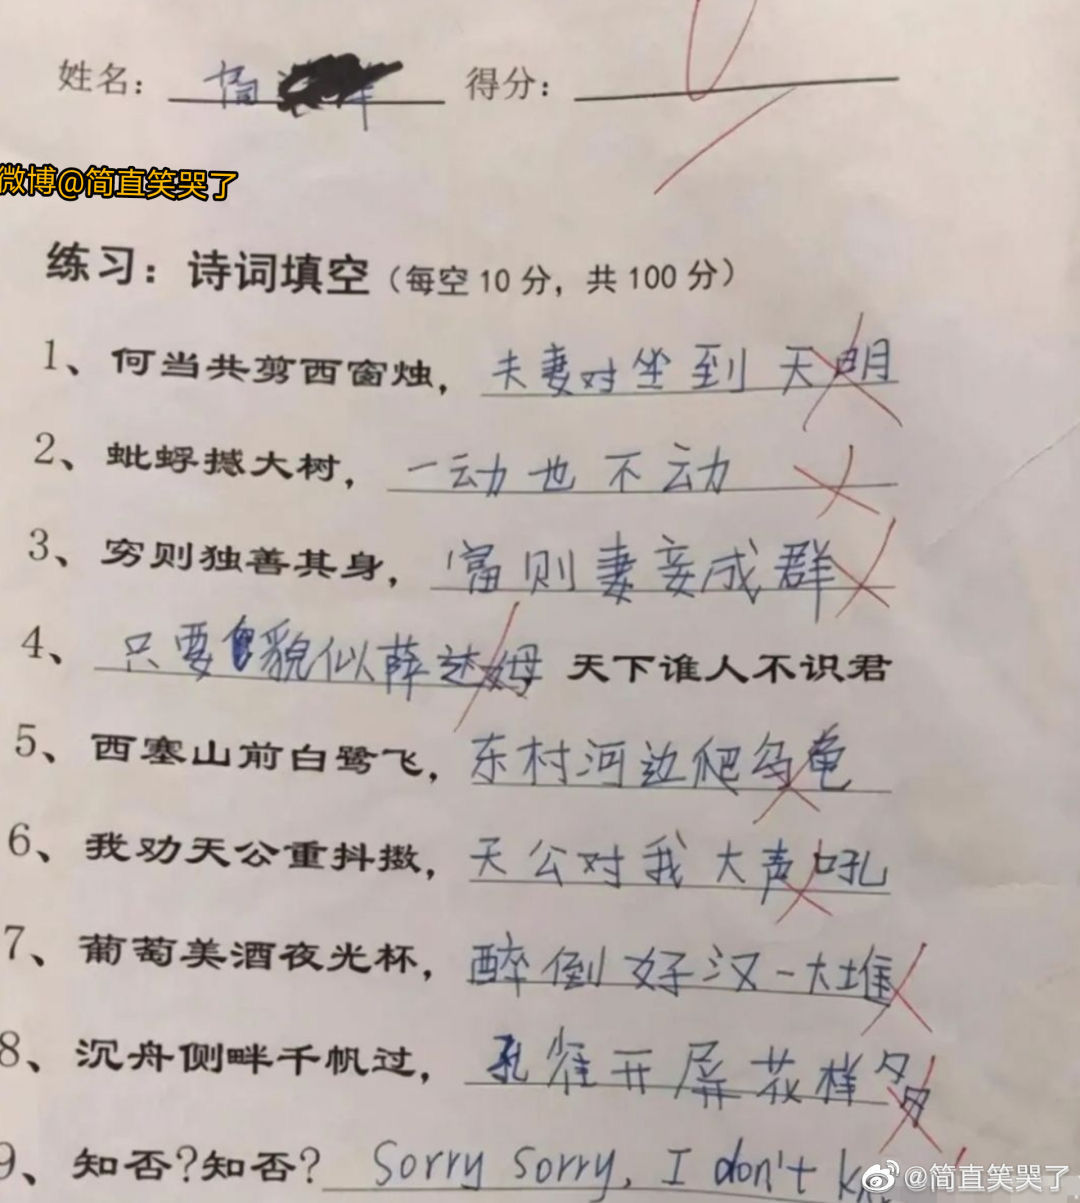 姓名： 得分：
微博@简直笑哭了
练习：诗词填空（每空10分，共100分）
1、何当共剪西窗烛，夫妻对坐到天明
2、蚍蜉撼大树，一动也不动
3、穷则独善其身，富则妻妾成群
4、只要貌似薛达姆 天下谁人不识君
5、西塞山前白鹭飞，东村河边爬乌龟
6、我劝天公重抖擞，天公对我大声吼
7、葡萄美酒夜光杯，醉倒好汉一大堆
8、沉舟侧畔千帆过，孔雀开屏花样多
9、知否?知否? Sorry sorry, I don't
@简直笑哭了